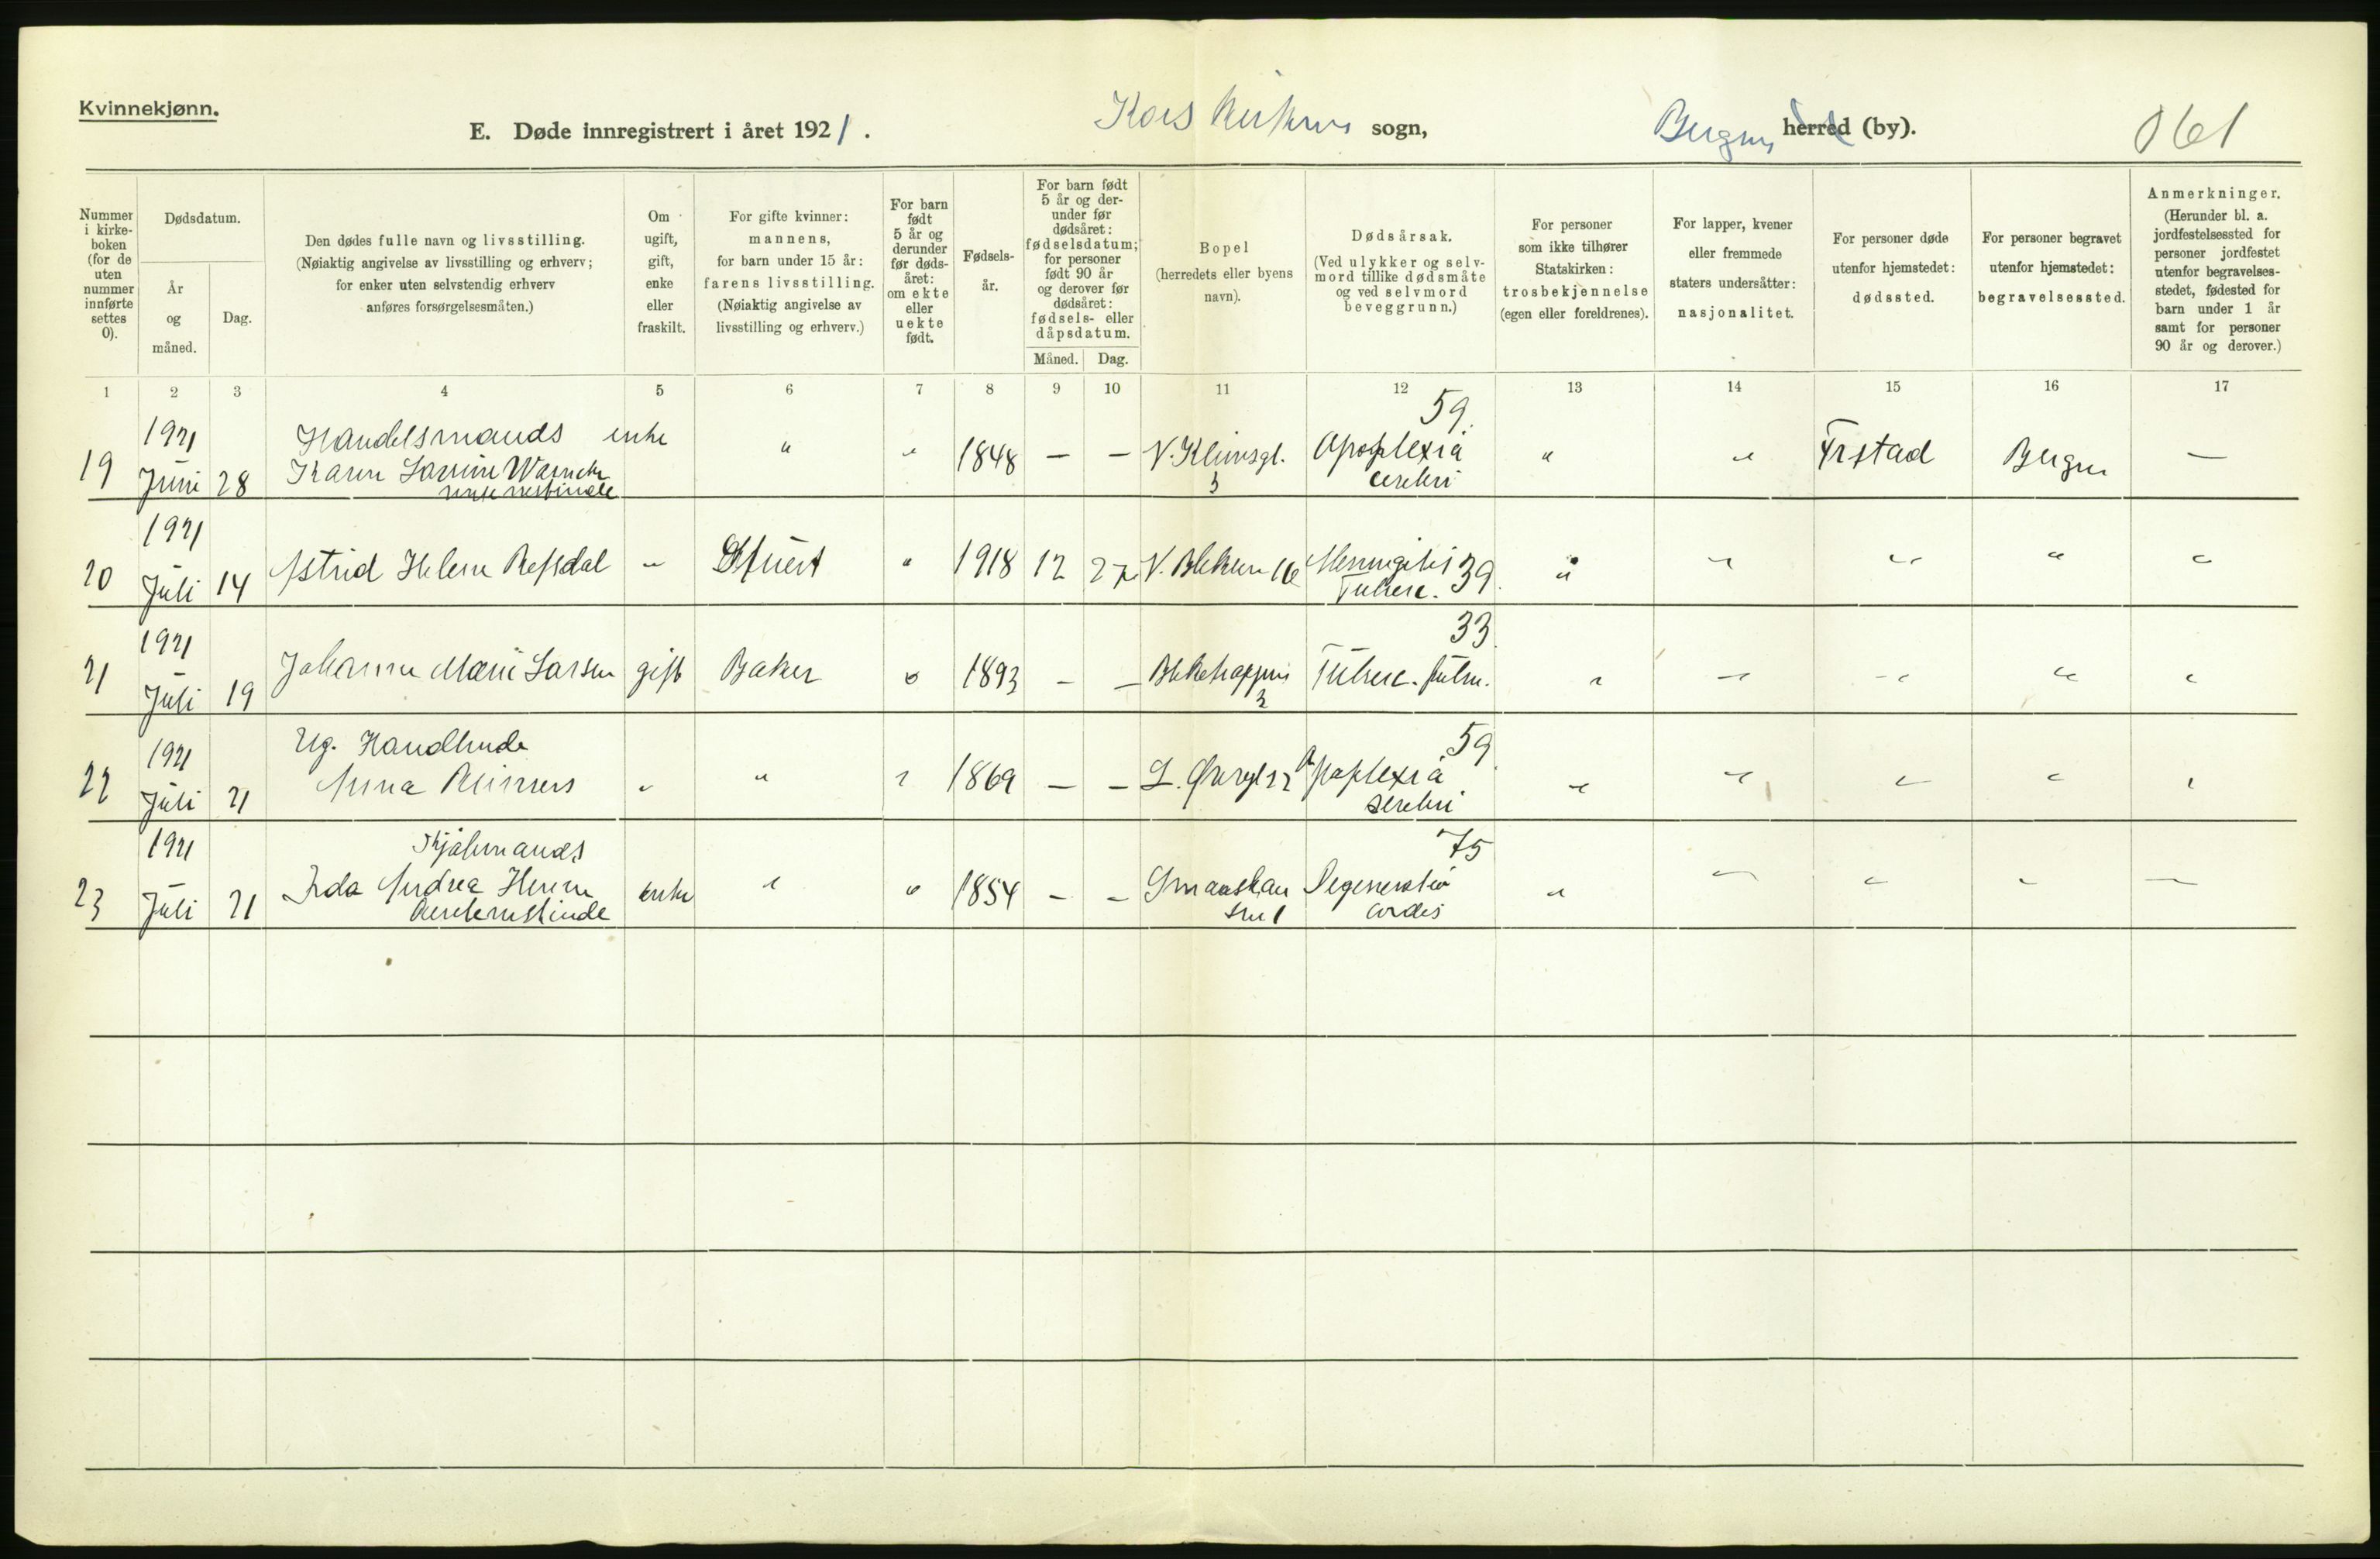 Kvinnekjønn.
E. Døde innregistrert i året 1921.
Korskirkens sogn,
Bergens herred (by).
161
Nummer i kirkeboken (for de uten nummer innførte settes 0).
Dødsdatum.
År og måned.
Dag.
Den dødes fulle navn og livsstilling.
(Nøiaktig angivelse av livsstilling og erhverv;
for enker uten selvstendig erhverv
anføres forsørgelsesmåten.)
Om ugift, gift, enke eller fraskilt.
For gifte kvinner:
mannens,
for barn under 15 år:
farens livsstilling.
(Nøiaktig angivelse av
livsstilling og erhverv.)
For barn født 5 år og derunder før dødsåret: om ekte eller uekte født.
Fødselsår.
For barn født 5 år og derunder før dødsåret: fødselsdatum; for personer født 90 år og derover før dødsåret: fødsels- eller dåpsdatum.
Måned. Dag.
Bopel
(herredets eller byens
navn).
Dødsårsak.
(Ved ulykker og selvmord tillike dødsmåte
og ved selvmord
beveggrunn.)
For personer
som ikke tilhører
Statskirken:
trosbekjennelse
(egen eller foreldrenes).
For lapper, kvener
eller fremmede
staters undersåtter:
nasjonalitet.
For personer døde
utenfor hjemstedet:
dødssted.
For personer begravet
utenfor hjemstedet:
begravelsessted.
Anmerkninger.
(Herunder bl. a.
jordfestelsessted for
personer jordfestet
utenfor begravelses-
stedet, fødested for
barn under 1 år
samt for personer
90 år og derover.)
1 2 3 4 5 6 7 8 9 10 11 12 13 14 15 16 17
1921 Handelsmands enke 59.
19 Juni 28 Karen " " 1848 — — N. Klimsgt. Apoplexia " " Bergen —
3 cerebri
1921
20 Juli 14 Astrid Helene Refsdal " Stuert " 1918 12 27 Meningitis 39. " " " " "
Tuberc.
1921 33
21 Juli 19 Johanne Marie Larsen gift Baker " 1893 — — Tuberc. pulm. " " " " "
3
1921 Ug. Handlende 59
22 Juli 21 Anna Reimers " " " 1869 — — L. Øvregt 22 Apoplexia " " " " "
cerebri
1921 75
23 Juli 21 Inda Andrea enke " " 1854 — — Degeneratio " " " " —
cordis